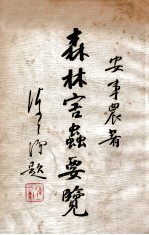 安事農著
森林害蟲要覽
陳嶸題